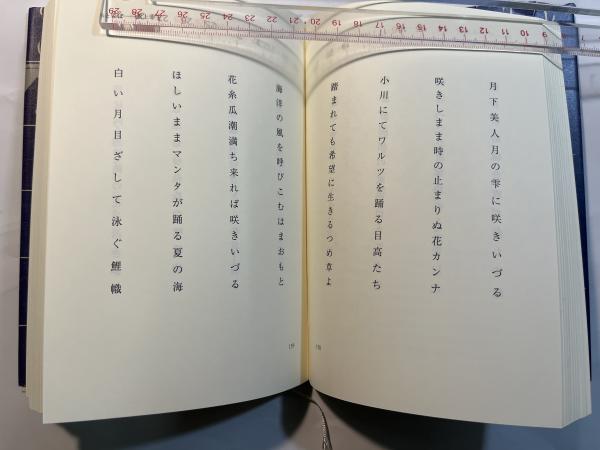 月下美人月の雫に咲きいづる
咲きしまま時の止まりぬ花カンナ
小川にてワルツを踊る目高たち
踏まれても希望に生きるつめ草よ
海鋒の風を呼びこむはまおもと
花糸瓜潮満ち来れば咲きいづる
ほしいままマンタが踊る夏の海
白い月目ざして泳ぐ鯉幟
29 28 27 26 25 24 23 22 21 20 19 18 17 16 15 14 13 12 11 10 9